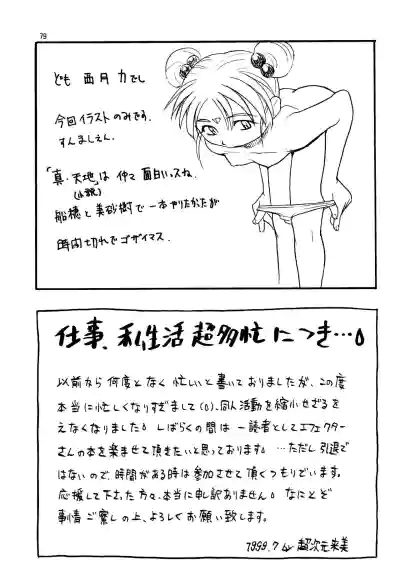 79
ども 西月 力でし
今回イラストのみです.
すんましぇん.
「真・天地」は 仲々 面白いっスね.
(小説)
船穂と美砂樹で一本やりたかたが
時間切れでゴザイマス.
仕事、私生活 超多忙 につき…。
以前から何度となく忙しいと書いておりましたが、この度
本当に忙しくなりすぎまして(。)、同人活動を縮小せざるを
えなくなりました。しばらくの間は一読者としてエフェクター
さんの本を楽ませて頂きたいと思っております。…ただし引退で
はないので、時間がある時は参加させて頂くつもりでいます。
応援して下さった方々、本当に申し訳ありません。なにとぞ
事情ご察しの上、よろしくお願い致します。
1999.7 超次元来美